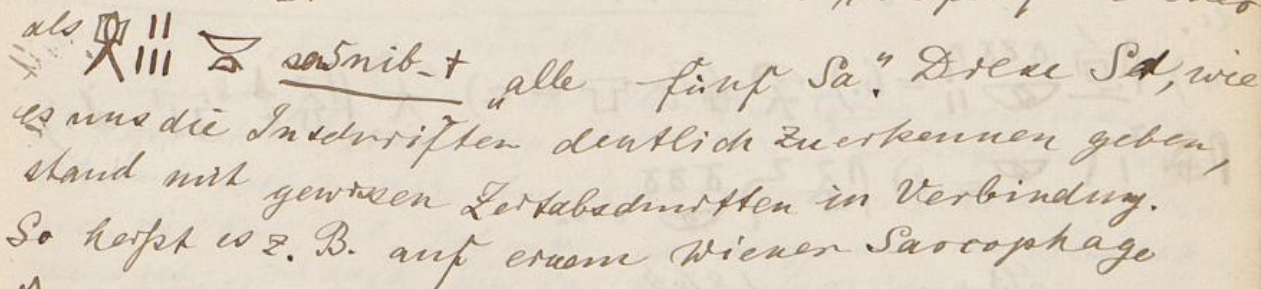 als sa5nib-t „alle fünf Sa.“ Diese Sa, wie
es uns die Inschriften deutlich zuerkennen geben,
stand mit gewissen Zeitabschnitten in Verbindung.
So heißt es z. B. auf einem Wiener Sarcophage